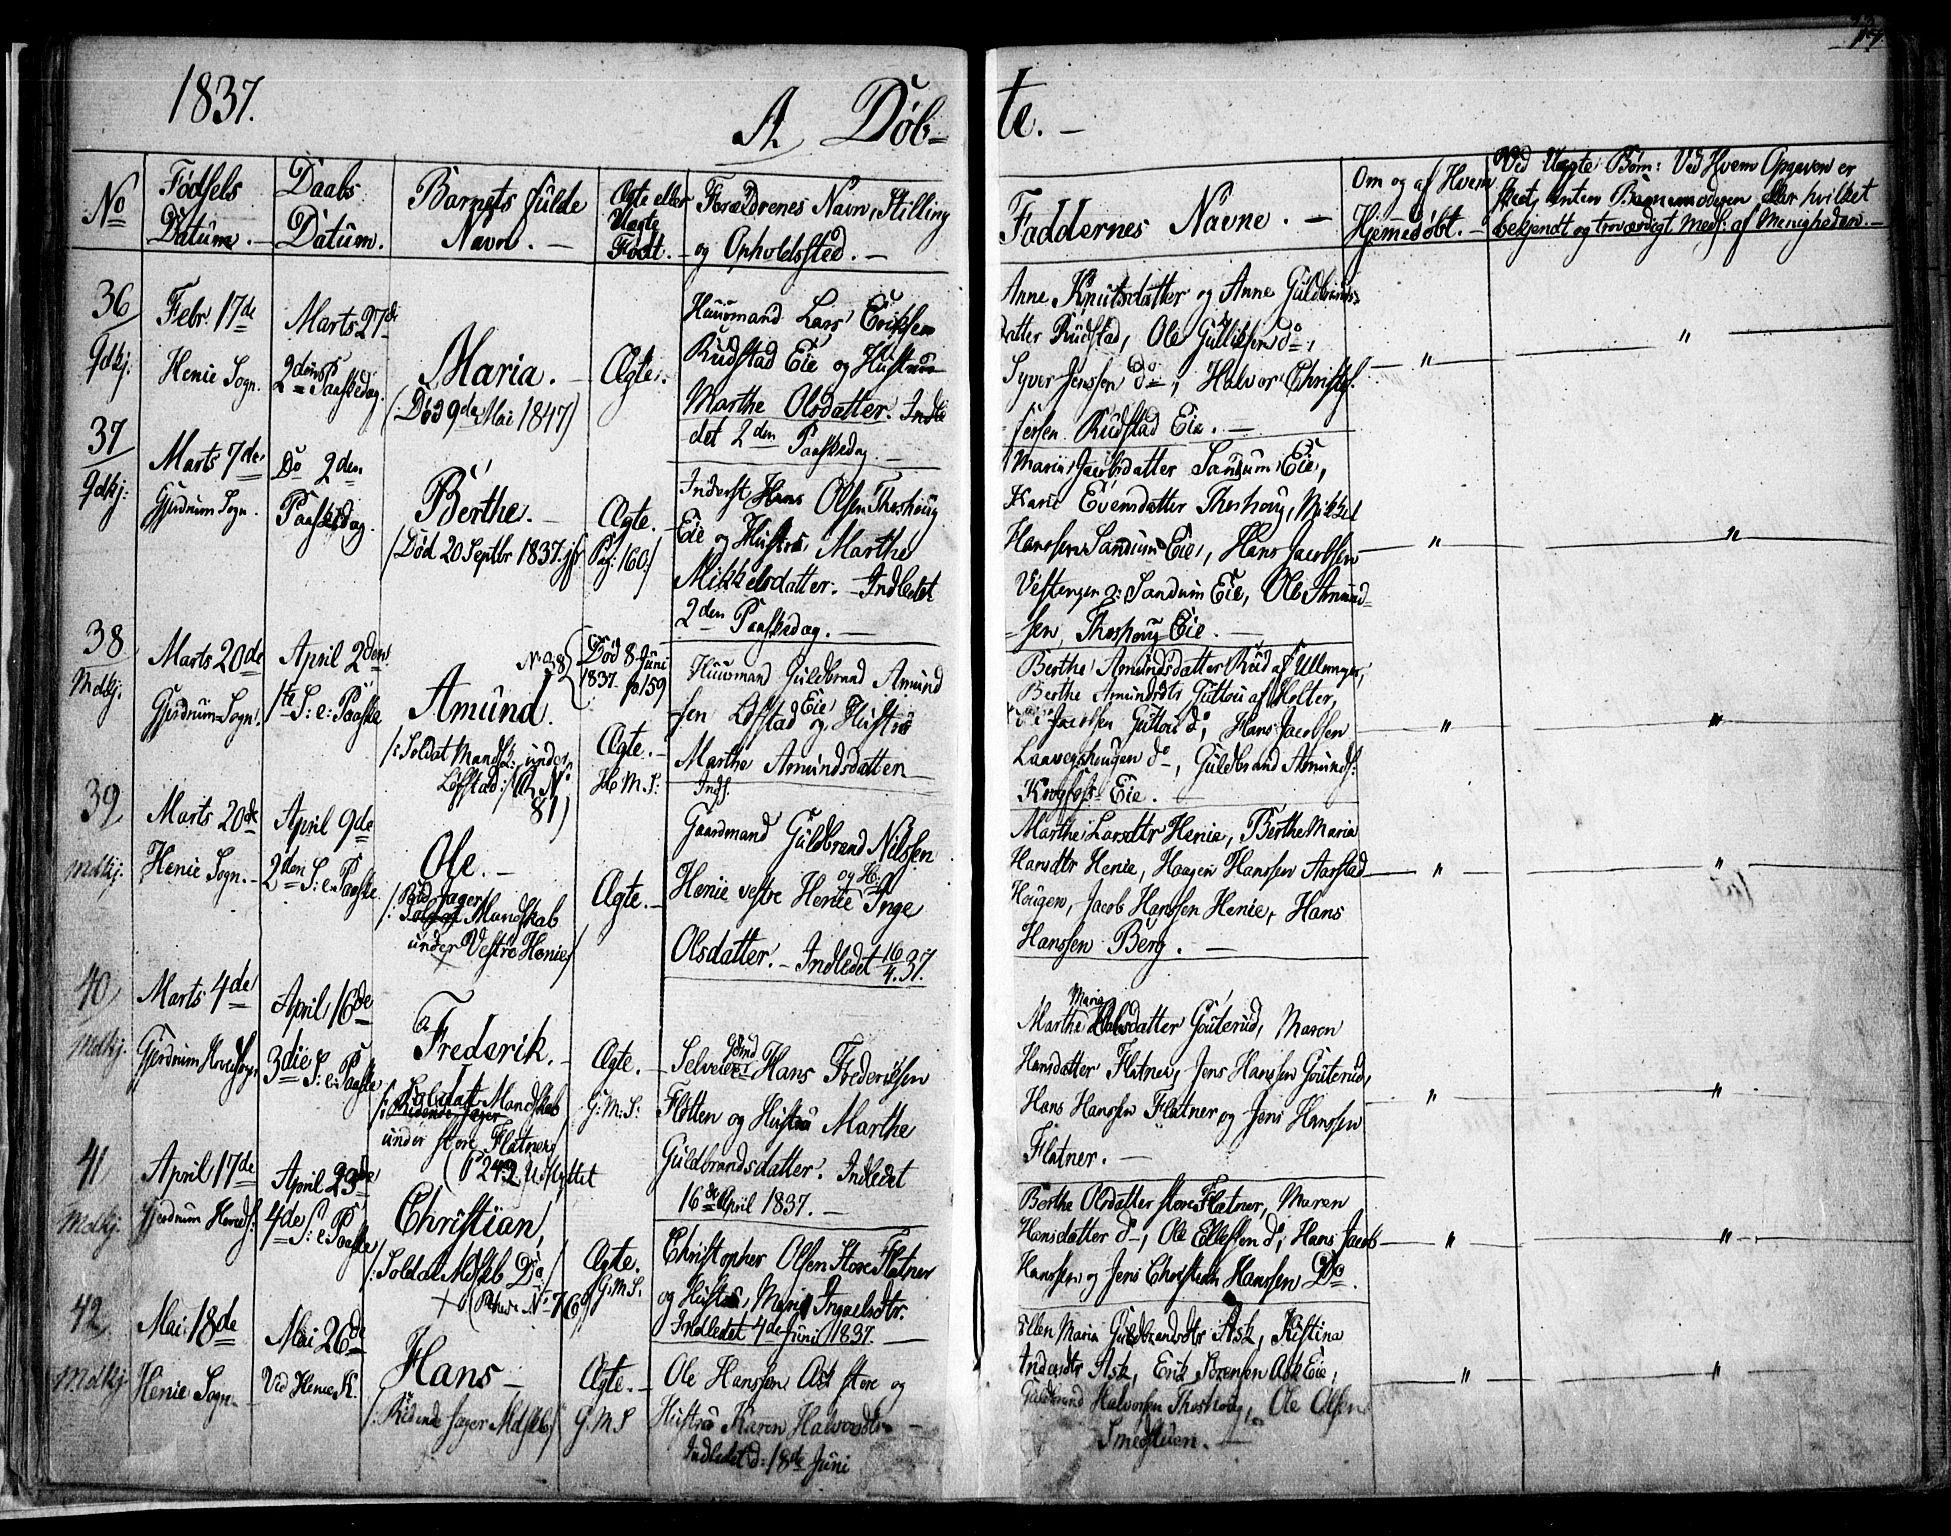 1837.
A. Döb-
te. —
No
Födsels
Datum. —
Daabs
Datum.
Barnets fulde
Navn. —
Ægte eller
Uægte
Födt. —
Forældrenes Navn, Stilling
og Opholdssted. —
Faddernes Navne. —
Om og af Hvem
Hjemedöbt. —
Ved Uægte Börn: Ved Hvem Opgaven er
skeet, enten Barnemoderen eller hvilket
bekjendt og troværdigt Meds: af Menigheden. —
36
Qdkj.
Febr. 17de
Henie Sogn.
Marts 27de
2den Paaskedag.
Maria. —
(Död 9de Mai 1847)
Ægte.
Huusmand Lars Eriksen
Rudstad Eie og Hustrue
Marthe Olsdatter. Indle
det 2den Paaskedag. —
Anne Knutsdatter og Anne Guldbrands
datter Rudstad, Ole Gulliksen do,
Syver Jenssen do, Halvor Christof
fersen Rudstad Eie. —
"
"
37
Qdkj:
Marts 7de
Gjerdrum Sogn.
Do 2den
Paaskedag.
Berthe. —
/Död 20 Septbr 1837. jfr
Pag: 160./
Ægte.
Inderst Hans Olsen Thoshoug
Eie og Hustru Marthe
Mikkelsdatter. — Indledet
2den Paaskedag. —
Maria Jacobsdatter Sandum Eie,
Karie Evensdatter Thoshoug, Mikkel
Hanssen Sandum Eie, Hans Jacobsen
Vestengen p: Sandum Eie, Ole Amund-
sen, Thoshoug Eie. —
"
"
38
Mdkj.
Marts 20de
Gjerdrum Sogn.
April 2den
1te S: e: Paaske
No 38
Amund.
/: Soldat Mandsk: under
Löfstad :/ Rh No
81)
Död 8 Juni
1837. p 159
Ægte. —
H. M. S:
Huusmand Guldbrand Amund
sen Löfstad Eie og Hustru
Marthe Amundsdatter —
Inds.
Berthe Amundsdatter Rud af Ullensager,
Berthe Amundsdtr Guttou af Holter,
Jacobsen Guttou do, Hans Jacobsen
Laavegshougen do, Guldbrand Amunds:
Krogfoss Eie. —
"
"
39
Mdkj.
Marts 20de
Henie Sogn. —
April 9de
2den S: e: Paaske
Ole. —
Rid Jager
/: Soldat Mandskab
under Vestre Henie/
Ægte. —
Gaardmand Guldbrand Nilssen
Henie vestre Henie og H: Inge
Olsdatter. — Indledet 16/4.37.
Marthe Larsdtr Henie, Berthe Maria
Hansdtr Henie, Haagen Hanssen Aarstad
Hougen, Jacob Hanssen Henie, Hans
Hanssen Berg. —
"
"
40
Mdkj.
Marts 4de
Gjerdrum Hovedsogn
April 16de
3die S: e: Paaske
Frederik. —
Soldat Mandskab
/: Ridende Jager
under store Flatner
(P 242) Udflyttet
Ægte. —
G: M: S:
Selveier Gbmd Hans Frederiksen
Flotten og Hustru Marthe
Guldbrandsdatter. Indledet
16de April 1837. —
Marthe Maria Olsdatter Gouterud, Maren
Hansdatter Flatner, Jens Hanssen Gouterud,
Hans Hanssen Flatner og Jens Hanssen
Flatner. —
"
"
41
Mdkj.
April 17de
Gjerdrum Hoveds:
April 23de
4de S: e: Paaske
Christian,
/: Soldat Mdskb Do
+ (Rhed No 76)
Ægte.
G: M: S:
Christopher Olsen Store Flatner
og Hustru, Maria Ingvelsdtr.
Indledet 4de Juni 1837. —
Berthe Olsdatter store Flatner, Maren
Hansdatter do, Ole Ellefsen do, Hans Jacob
Hanssen og Jens Christian Hanssen Do.
"
"
42
Mdkj
Mai 18de
Henie Sogn.
Mai 26de
Ved Henie K.
Hans —
/: Ridende Jager Mdskb/
Ægte. —
G: M. S
Ole Hanssen Ask store og
Hustru Karen Halvorsdtr —
Indledet d: 18de Juni
Ellen Maria Guldbrandsdtr Ask, Kistina
Andersdtr Ask, Erik Sörensen Ask Eie,
Guldbrand Halvorsen Thoshoug, Ole Olsen
Smestuen. —
"
"